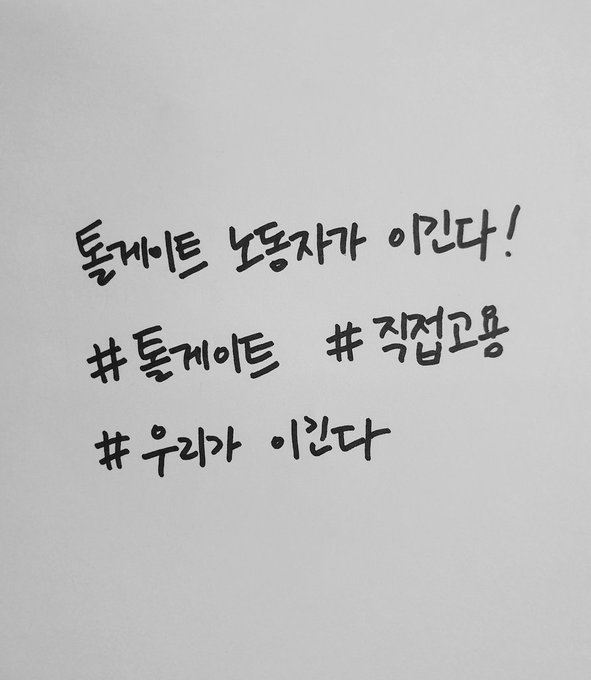 톨게이트 노동자가 이긴다!
#톨게이트 #직접고용
#우리가 이긴다